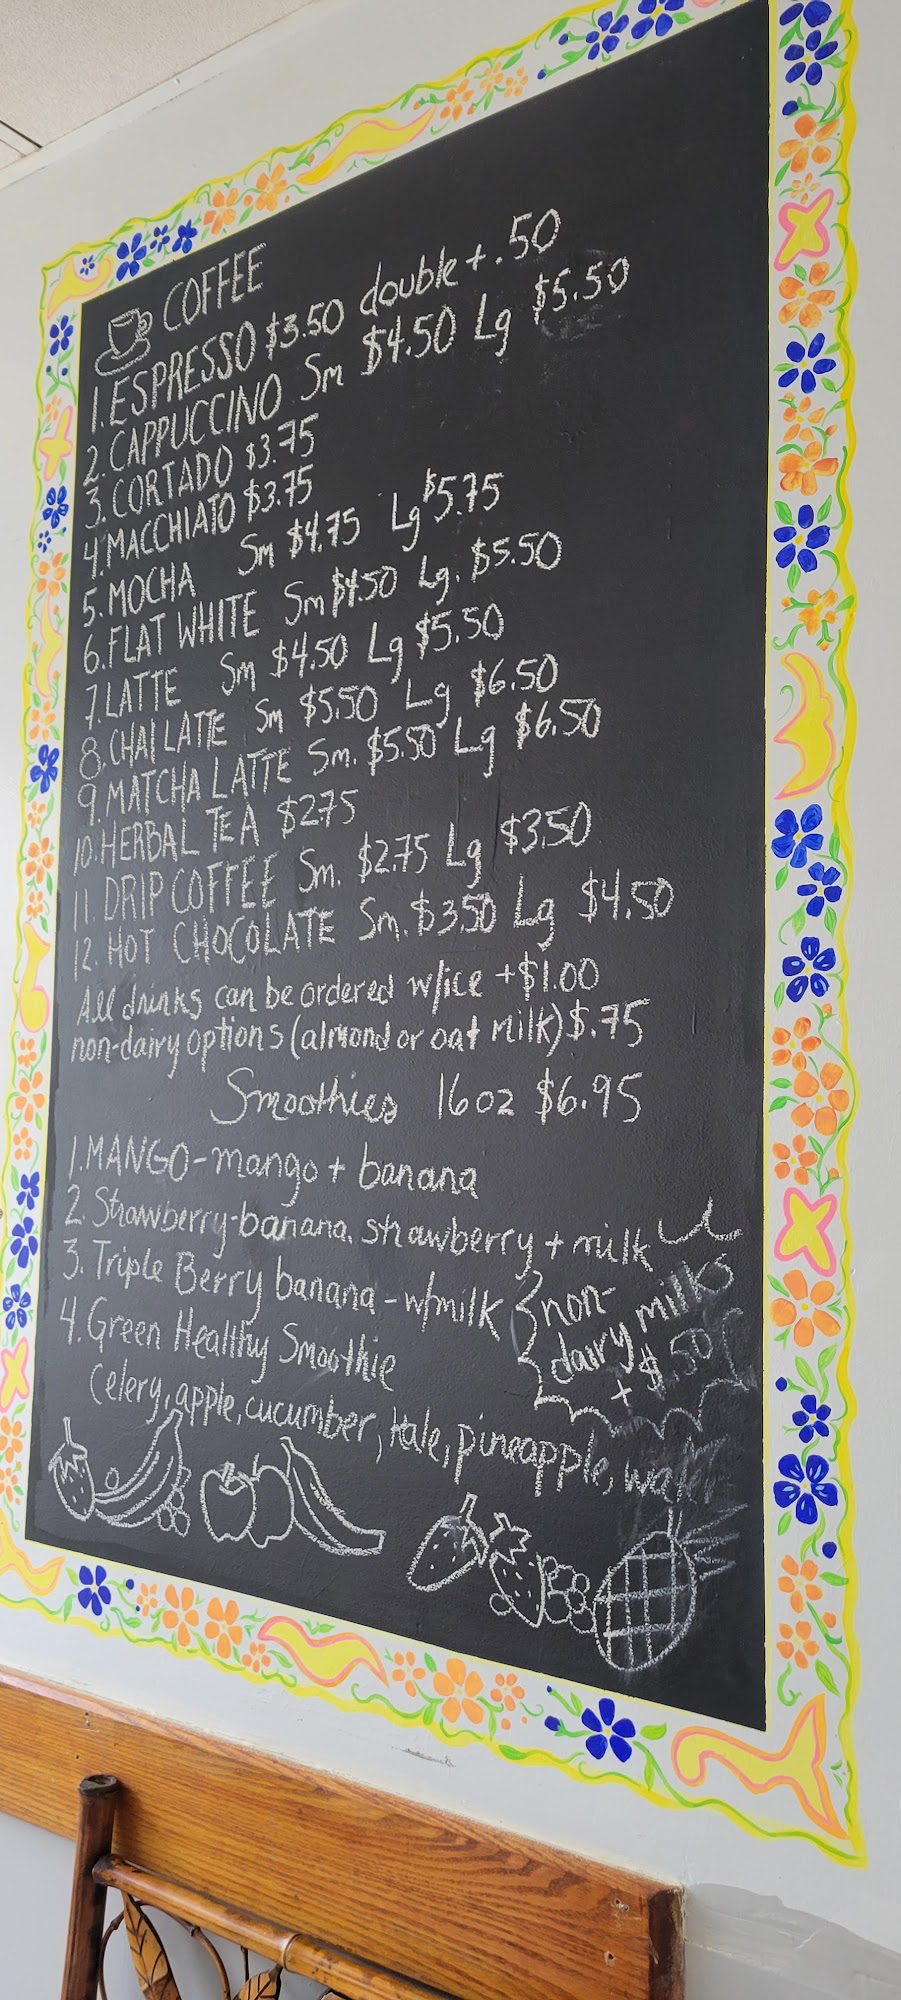 COFFEE
1. ESPRESSO $3.50 double + .50
2. CAPPUCCINO Sm $4.50 Lg $5.50
3. CORTADO $3.75
4. MACCHIATO $3.75
5. MOCHA Sm $4.75 Lg $5.75
6. FLAT WHITE Sm $4.50 Lg. $5.50
7. LATTE Sm $4.50 Lg $5.50
8. CHAI LATTE Sm $5.50 Lg $6.50
9. MATCHA LATTE Sm. $5.50 Lg $6.50
10. HERBAL TEA $2.75
11. DRIP COFFEE Sm. $2.75 Lg $3.50
12. HOT CHOCOLATE Sm. $3.50 Lg $4.50
All drinks can be ordered w/ice +$1.00
non-dairy options (almond or oat milk) $.75
Smoothies 16oz $6.95
1. MANGO - mango + banana
2. Strawberry-banana, strawberry + milk
3. Triple Berry banana - w/milk
non-
dairy milks
+ $.50
4. Green Healthy Smoothie
Celery, apple, cucumber, kale, pineapple, water